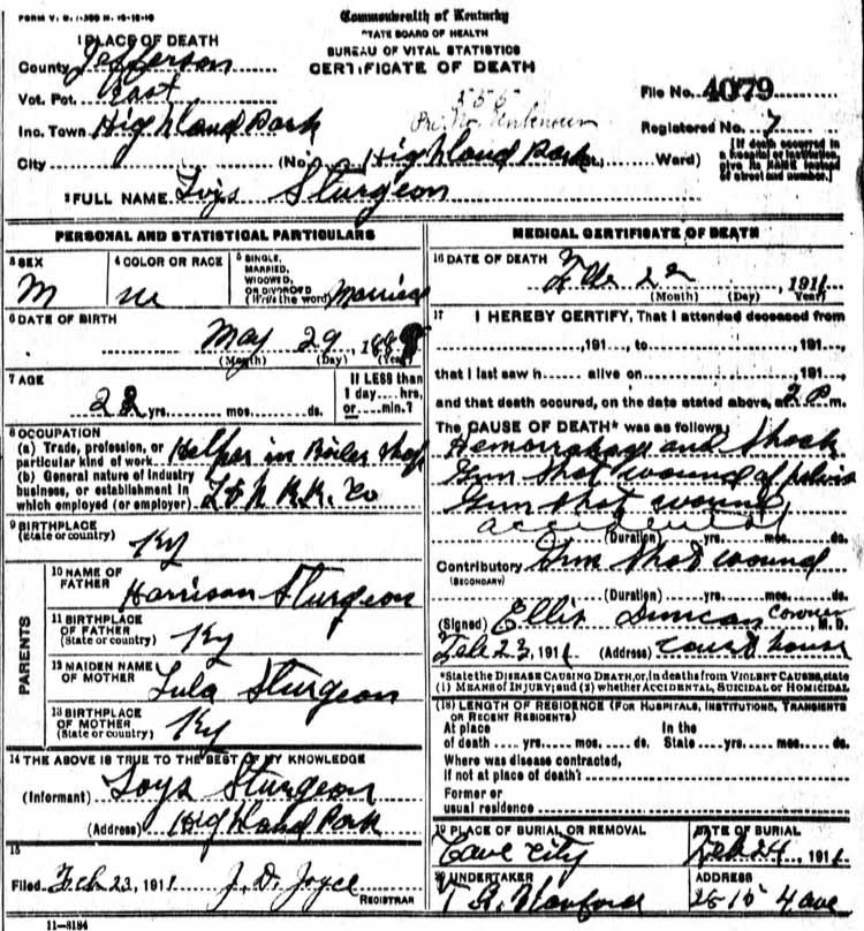 FORM V. S. 1-300 M. 10-12-10
Commonwealth of Kentucky
STATE BOARD OF HEALTH
BUREAU OF VITAL STATISTICS
CERTIFICATE OF DEATH
1 PLACE OF DEATH
County Jefferson
Vot. Pct. East
Inc. Town Highland Park
City
(No. Highland Park St., Ward)
555
Pri. No. Unknown
File No. 4079
Registered No. 7
[If death occurred in
a hospital or institution,
give its NAME instead
of street and number.]
2 FULL NAME Loys Sturgeon
PERSONAL AND STATISTICAL PARTICULARS
3 SEX
M
4 COLOR OR RACE
5 SINGLE,
MARRIED,
WIDOWED,
OR DIVORCED
(Write the word) Married
6 DATE OF BIRTH
May 29 188
(Month) (Day) (Year)
7 AGE
22 yrs. mos. ds.
If LESS than
1 day.... hrs.
or ....min.?
8 OCCUPATION
(a) Trade, profession, or
particular kind of work Helper in Boiler Shop
(b) General nature of industry
business, or establishment in
which employed (or employer) L & N R.R. Co
9 BIRTHPLACE
(State or country) Ky
PARENTS
10 NAME OF
FATHER Harrison Sturgeon
11 BIRTHPLACE
OF FATHER
(State or country) Ky
12 MAIDEN NAME
OF MOTHER Lula Sturgeon
13 BIRTHPLACE
OF MOTHER
(State or country) Ky
14 THE ABOVE IS TRUE TO THE BEST OF MY KNOWLEDGE
(Informant) Loys Sturgeon
(Address) Highland Park
15
Filed Feb 23, 1911 J. D. Joyce
REGISTRAR
11-8184
MEDICAL CERTIFICATE OF DEATH
16 DATE OF DEATH
Feb 22, 1911
(Month) (Day) (Year)
17 I HEREBY CERTIFY, That I attended deceased from
, 191 , to , 191 ,
that I last saw h alive on , 191 ,
and that death occured, on the date stated above, at 2 P m.
The CAUSE OF DEATH* was as follows:
Hemorrahage and Shock
Gun shot wound of pelvis
Gun shot wound
accidental
(Duration) yrs. mos. ds.
Contributory Gun shot wound
(SECONDARY)
(Duration) yrs. mos. ds.
(Signed) Ellis Duncan Coroner M.D.
Feb 23, 1911 (Address) Court house
*State the DISEASE CAUSING DEATH, or, in deaths from VIOLENT CAUSES, state
(1) MEANS of INJURY; and (2) whether ACCIDENTAL, SUICIDAL or HOMICIDAL
(18) LENGTH OF RESIDENCE (FOR HOSPITALS, INSTITUTIONS, TRANSIENTS
OR RECENT RESIDENTS)
At place
of death .... yrs. mos. ds.
In the
State .... yrs. mos. ds.
Where was disease contracted,
if not at place of death?
Former or
usual residence
19 PLACE OF BURIAL OR REMOVAL
Cave City
DATE OF BURIAL
Feb 24, 1911
20 UNDERTAKER
ADDRESS
4 ave